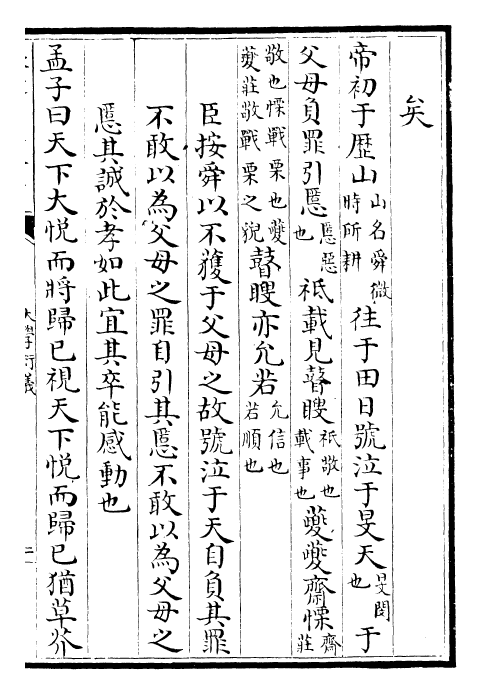 矣
帝初于歷山山名舜微時所耕往于田日號泣于旻天旻閔也于
父母負罪引慝慝惡也祗載見瞽瞍祗敬也載事也夔夔齋慄齋莊
敬也慄戰栗也夔夔莊敬戰栗之貌瞽瞍亦允若允信也若順也
臣按舜以不獲于父母之故號泣于天自負其罪
不敢以為父母之罪自引其慝不敢以為父母之
慝其誠於孝如此宜其卒能感動也
孟子曰天下大悅而將歸已視天下悅而歸已猶草芥
大學衍義